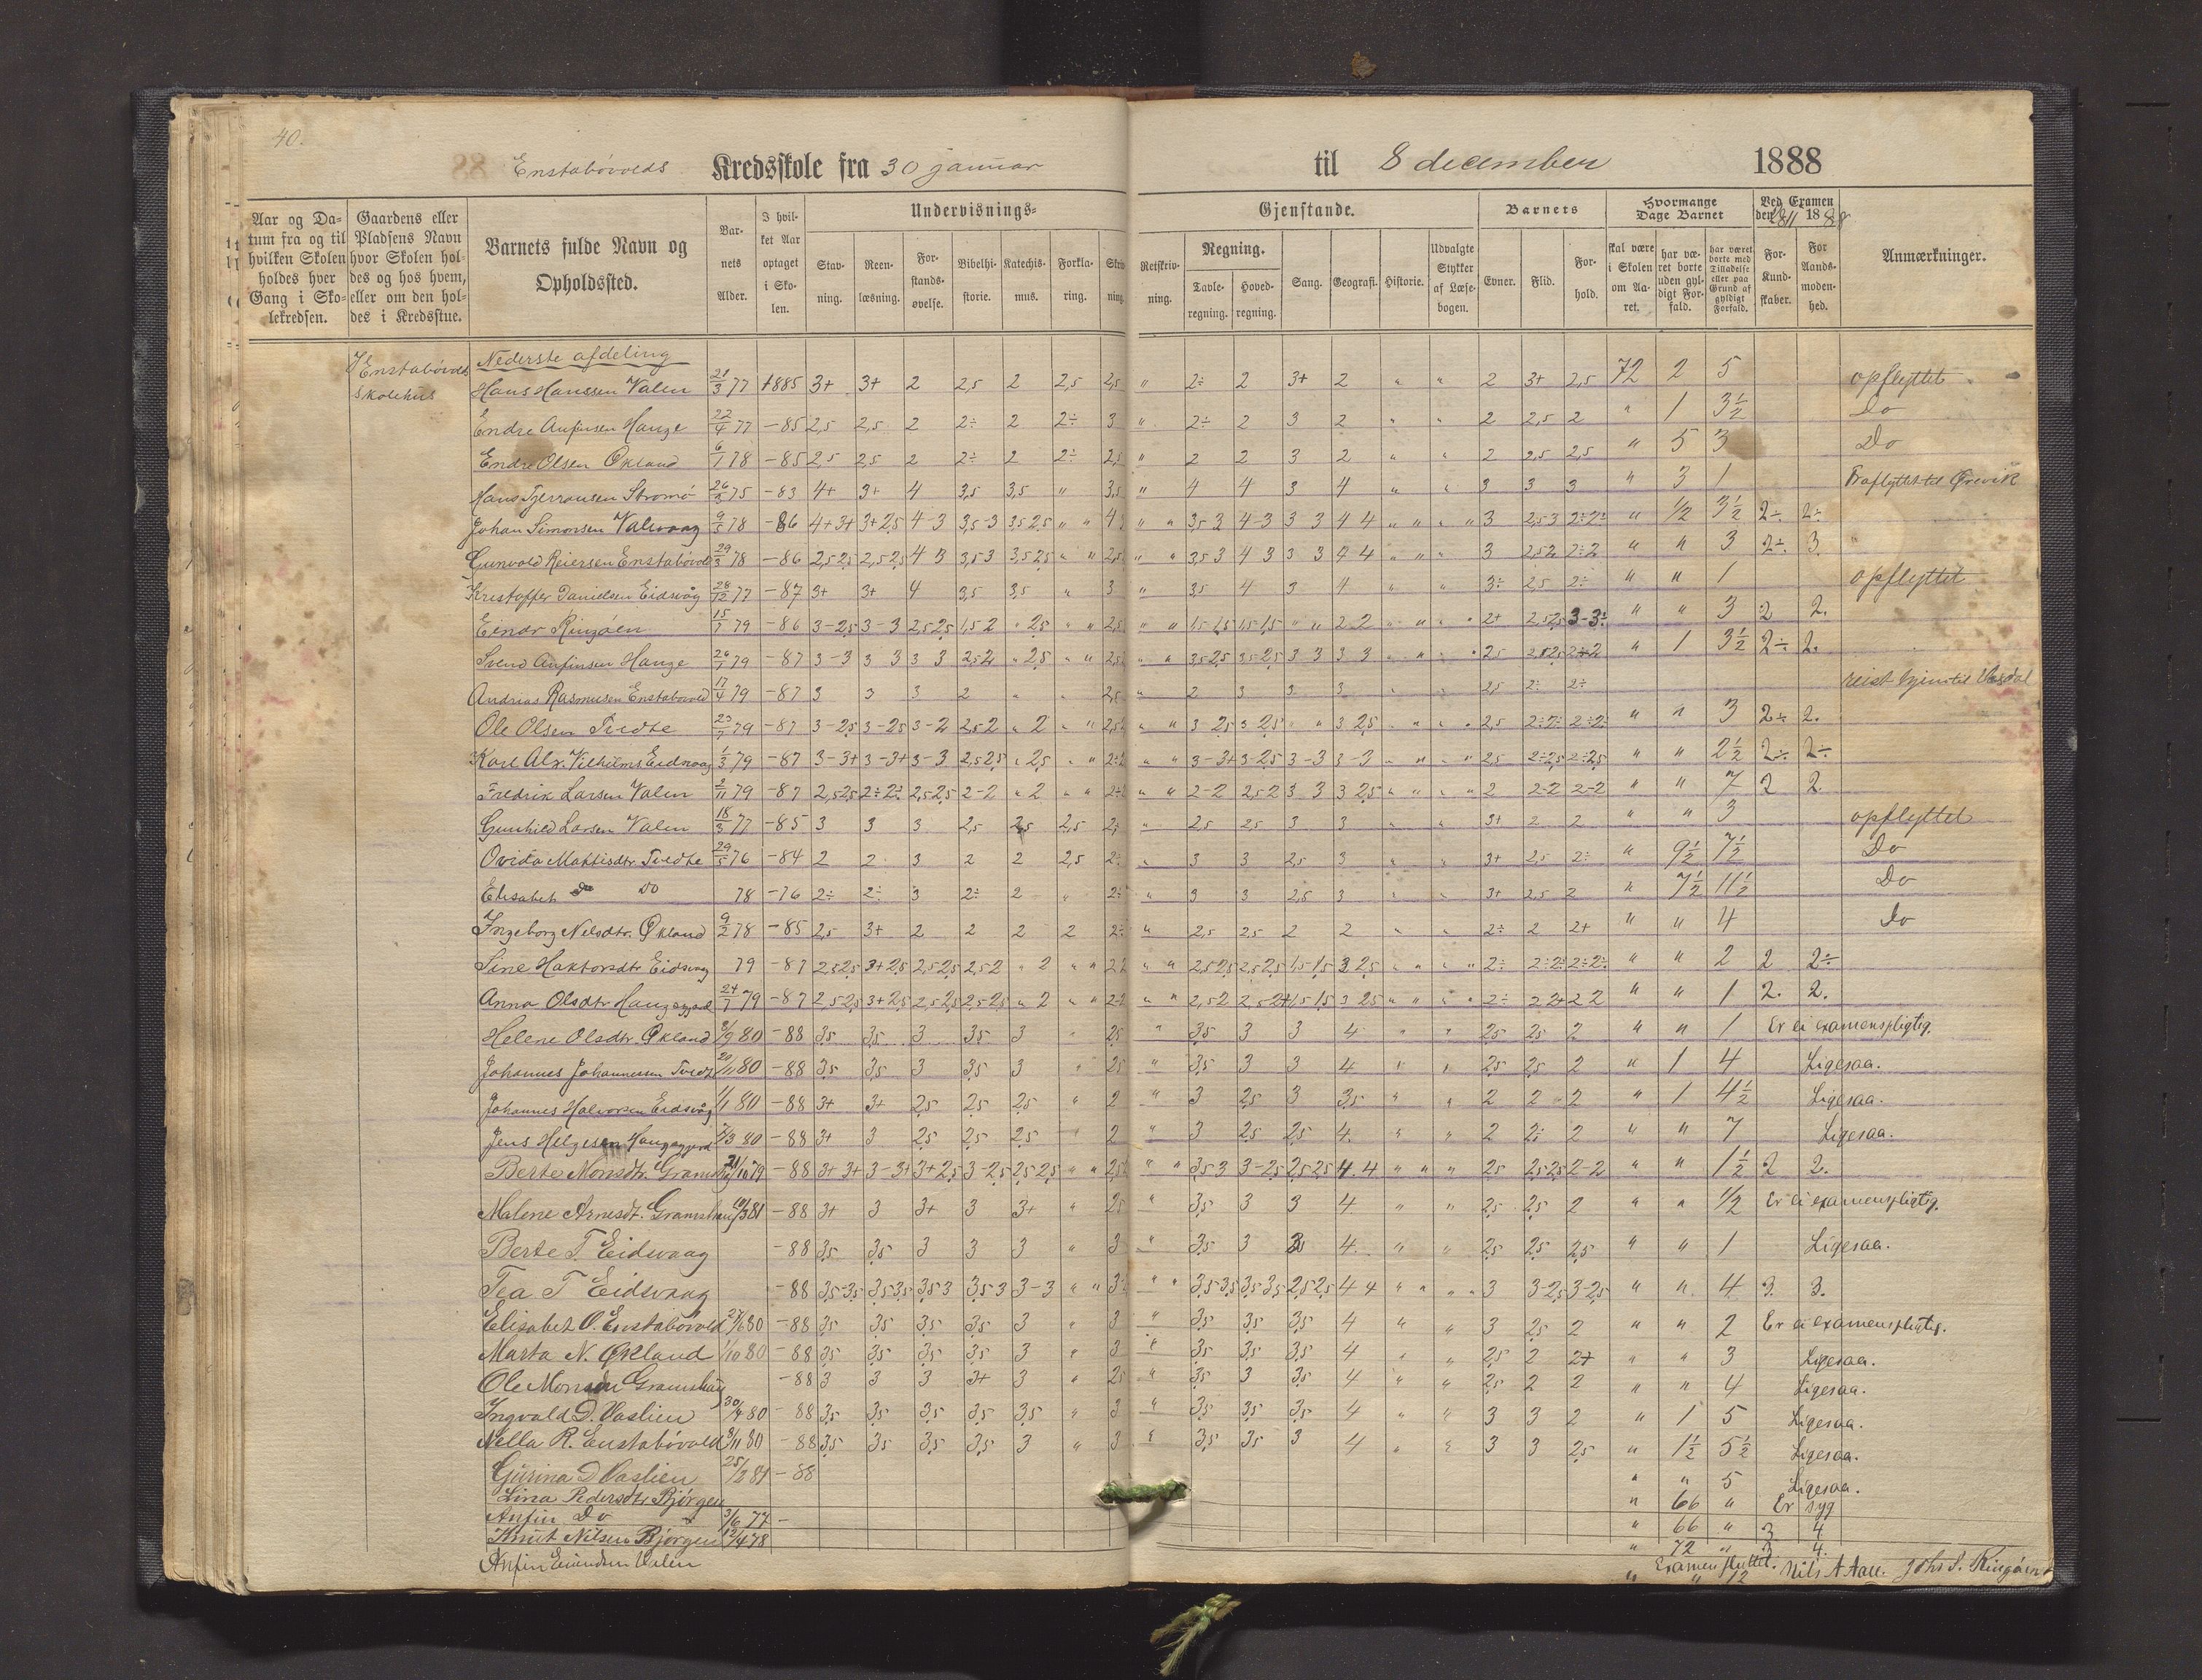 40.
Enstabóvolds Kredsskole fra 30 januar til 8 december 1888
Aar og Datum fra og til hvilken Skolen holdes hver Gang i Skolekredsen.
Gaardens eller Pladsens Navn hvor Skolen holdes og hos hvem, eller om den holdes i Kredsstue.
Barnets fulde Navn og Opholdssted.
Barnets Alder.
I hvilket Aar optaget i Skolen.
Undervisnings-Gjenstande.
Stavning. Reenlæsning. Forstandsøvelse. Bibelhistorie. Katechismus. Forklaring. Skrivning.
Retskrivning. Regning. Tavleregning. Hovedregning. Sang. Geografi. Historie. Udvalgte Stykker af Læsebogen.
Barnets Evner. Flid. Forhold.
Hvormange Dage Barnet
skal være i Skolen om Aaret. har været borte uden gyldigt Forfald. har været borte med Tilladelse eller paa Grund af gyldigt Forfald.
Ved Examen den 28/11 1888
For Kundskaber. For Aandsmodenhed.
Anmærkninger.
I Enstabóvolds Skolehus
Nederste afdeling
Hans Hanssen Valen 21/3 77 1885 3+ 3+ 2 2,5 2 2,5 2,5 " 2÷ 2 3+ 2 " " 2 3+ 2,5 72 2 5 opflyttet
Endre Anfinsen Hauge 22/4 77 -85 2,5 2,5 2 2÷ 2 2÷ 3 " 2÷ 2 3 2 " " 2 2,5 2 " 1 3½ Do
Endre Olsen Økland 6/1 78 -85 2,5 2,5 2 2÷ 2 2÷ 2,5 " 2 2 3 2 " " 2 2,5 2,5 " 5 3 Do
Hans Tjerransen Stromø 26/3 75 -83 4+ 3+ 4 3,5 3,5 " 3,5 " 4 4 3 4 " " 3 3 3 " 3 1 Fraflyttet til Ørevik
Johan Simonsen Valevaag 9/5 78 -86 4+3+ 3+2,5 4-3 3,5-3 3,5 2,5 " " 4 " " 3,5 3 4-3 3 3 4 4 " " " " 3 2,5 3 2÷2÷ " 1/2 3½ 2÷ 2÷
Gunvald Reiersen Enstabóvold 29/3 78 -86 2,5 2,5 2,5 2,5 4 3 3,5 3 3,5 2,5 " " 2,5 " " 3,5 3 4 3 3 3 4 4 " " " 3 2,5 2 2÷2 " " 3 2÷ 3
Kristoffer Danielsen Eidsvåg 28/12 77 -87 3+ 3+ 4 3,5 3,5 " 3 " 3,5 4 3 4 " " 3÷ 2,5 2÷ " " 1 opflyttet
Einar Ringøen 15/1 79 -86 3-2,5 3-3 2,5 2,5 1,5 2 " 2,5 " " 2,5 " " 1,5-1,5 1,5-1,5 " " 2 2 " " " " 2+ 2,5 2,5 3-3÷ " " 3 2 2.
Svend Anfinsen Hauge 26/1 79 -87 3-3 3 3 3 3 2,5 2 " 2,5 " " 2,5 " " 3,5 2,5 3,5-2,5 3 3 3 3 " " " " 2,5 2,5 2,5 2÷2 " 1 3½ 2÷ 2.
Andreas Rasmusen Enstabovold 17/4 79 -87 3 3 3 2 " " 2,5 " 2 3 3 3 " " 2,5 2÷ 2÷ reist hjem til
Ole Olsen Tvedte 23/7 79 -87 3-2,5 3-2,5 3-2 2,5 2 " 2 " " 2,5 " " 3-2,5 3 2,5 " " 3 2,5 " " " " 2,5 2÷2÷ 2÷2÷ " " 3 2÷ 2.
Karl Alx. Vilhelms Eidsvaag 1/3 79 -87 3-3+ 3-3+ 3-3 2,5 2,5 " 2,5 " " 2÷2 " " 3-3+ 3-2,5 3-3 3-3 " " " " 2,5 2÷2,5 2÷2,5 " " 2½ 2÷ 2÷
Fredrik Larsen Valen 2/11 79 -87 2,5 2,5 2÷2÷ 2,5-2,5 2-2 " 2 " " 2÷ " " 2-2 2,5 2 3 3 3 2,5 " " " " 2 2-2 2-2 " " 7 2 2
Gunhild Larsen Valen 18/3 77 -85 3 3 3 2,5 2,5 2,5 2÷ " 2,5 2,5 3 3 " " 3+ 2 2 " " 3 opflyttet
Ovida Mattisdtr Tvedte 29/5 76 -84 2 2 3 2 2 2,5 2÷ " 3 3 2,5 3 " " 3+ 2,5 2÷ " 9½ 7½ Do
Elisabet Do Do 78 -76 2÷ 2÷ 3 2÷ 2 " 2÷ " 3 3 2,5 3 " " 3+ 2,5 2 " 7½ 11½ Do
Ingeborg Nilsdtr. Økland 9/2 78 -85 2,5 3+ 2 2 2 2 2÷ " 2,5 2,5 2 2 " " 2÷ 2 2+ " " 4 Do
Sine Haktorsdtr Eidsvag 79 -87 2,5 2,5 3+2,5 2,5 2,5 2,5 2 " 2 " " 2 2 " " 2,5 2,5 2,5 2,5 1,5-1,5 3 2,5 " " " " 2÷ 2÷2÷ 2÷2÷ " " 2 2 2÷
Anna Olsdtr Haugegjerd 24/7 79 -87 2,5 2,5 3+2,5 2,5 2,5 2,5 2,5 " 2 " " 2-2 " " 2,5 2 2,5 2+ 1,5 1,5 3 2,5 " " " " 2÷ 2 2+ 2 2 " " 1 2. 2.
Helene Olsdtr. Økland 8/9 80 -88 3,5 3,5 3 3,5 3 " 2,5 " 3,5 3 3 4 " " 2,5 2,5 2 " " 1 Er ei examenspligtig.
Johannes Johannessen Tvedt 20/11 80 -88 3,5 3,5 3 3,5 3 " 2,5 " 3,5 3 3 4 " " 2,5 2,5 2 " 1 4 Ligesaa.
Johannes Halvorsen Eidsvåg 1/1 80 -88 3+ 3+ 2,5 2,5 2,5 2 " 3 2,5 3 3,5 " " 2 2 2 " 1 4½ Ligesaa.
Jens Helgesen Haugegjerd 7/3 80 -88 3+ 3 2,5 2,5 2,5 " 2 " 3 2,5 2,5 4. " " 2 2÷ 2 " " 7 Ligesaa.
Berte Monsdtr. Gramshaug 21/10 79 -88 3+3+ 3-3+ 3+2,5 3-2,5 2,5 2,5 " " 2,5 " " 3,5 3 3-2,5 2,5 2,5 4.4 " " " 2,5 2,5 2,5 2-2 " " 1½ 2 2.
Malene Arnesdt. Gramshaug 10/3 81 -88 3+ 3 3+ 3 3+ " 2,5 " 3,5 3 3 4 " " 2,5 2,5 2 " " 1/2 Er ei examenspligtig.
Berte T Eidsvaag -88 3,5 3,5 3 3 3 " 3 " 3,5 3 3 4. " " 2,5 2,5 2,5 " " 1 Ligesaa.
Tea T Eidsvaag -88 3,5-3,5 3,5 3,5 3,5 3 3,5 3 3-3 " " 3 " " 3,5 3,5 3,5 3,5 2,5 2,5 4 4 " " " " 3 3-2,5 3-2,5 " " 4 3. 3.
Elisabet O. Enstabóvold 27/6 80 -88 3,5 3,5 3,5 3,5 3 " 3 " 3,5 3,5 3,5 4 " " 3 2,5 2 " " 2 Er ei examenspligtig.
Marta N. Økland 1/10 80 -88 3,5 3,5 3,5 3,5 3 " 3 " 3,5 3,5 3,5 4 " " 2,5 2 2+ " " 3 Ligesaa.
Ole Monsen Gramshaug -88 3 3 3 3+ 3 " 2,5 " 3,5 3 3,5 4 " " 2,5 2 2 " " 4 Ligesaa.
Ingvald D. Vaslien 30/4 80 -88 3,5 3,5 3,5 3,5 3,5 " 3 " 3,5 3,5 3,5 4 " " 3 3 2 " 1 5 Ligesaa.
Nella R. Enstabóvold 3/11 80 -88 3,5 3,5 3,5 3,5 3 " 3 " 3,5 3,5 3 4 " " 3 3 2,5 " 1½ 5½ Ligesaa.
Gurina D Vaslien 25/3 81 -88 " " 5 Ligesaa.
Lina Pedersdtr Bjørgen " 66 " Er syg
Anfin Do 3/6 77 - " 66 " 3 4
Knut Nilsen Bjørgen 12/4 78 " 72 " 3 4.
Anfin Valen " " 12
Examen sluttet. Nils A Aau. Johs S. Ringøen